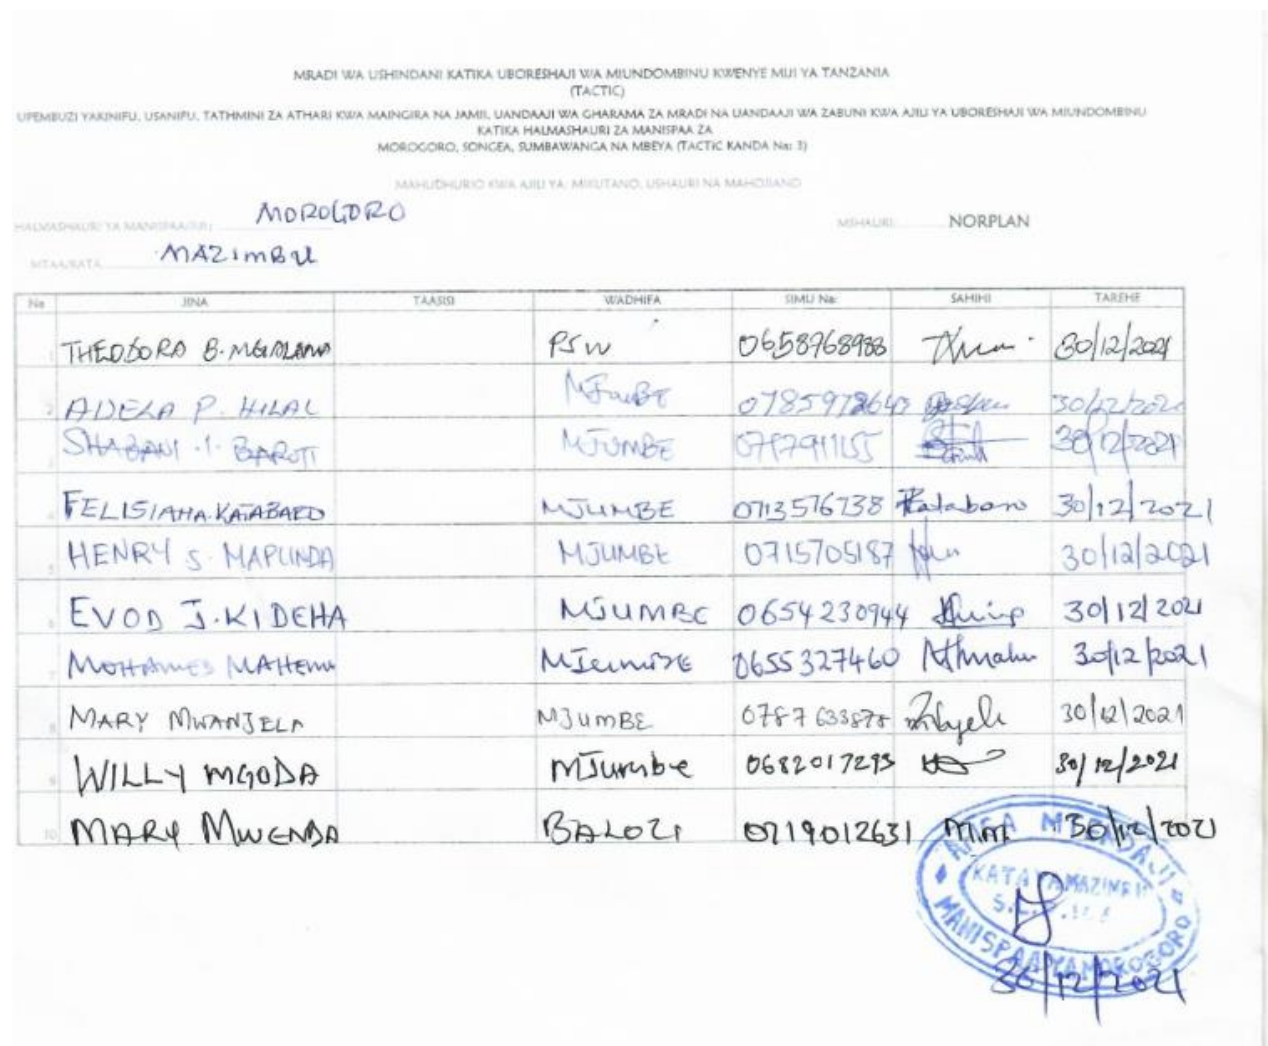 MRADI WA USHINDANI KATIKA UBORESHAJI WA MIUNDOMBINU KWENYE MIJI YA TANZANIA
(TACTIC)
UPEMBUZI YAKINIFU, USANIFU, TATHMINI ZA ATHARI KWA MAINGIRA NA JAMII, UANDAAJI WA GHARAMA ZA MRADI NA UANDAAJI WA ZABUNI KWA AJILI YA UBORESHAJI WA MIUNDOMBINU
KATIKA HALMASHAURI ZA MANISPAA ZA
MOROGORO, SONGEA, SUMBAWANGA NA MBEYA (TACTIC KANDA Na: 3)
MAHUDHURIO KWA AJILI YA: MIKUTANO, USHAURI NA MAHOJIANO
HALMASHAURI YA MANISPAA/JIJI: MOROGORO MSHAURI: NORPLAN
MTAA/KATA MAZIMBU
Na JINA TAASISI WADHIFA SIMU Na: SAHIHI TAREHE
1 THEODORA B. PSW 0658768988 30/12/2021
2 ADELA P. HILAL MJUMBE 30/12/2021
3 SHABANI .I. BARUTI MJUMBE 30/12/2021
4 MJUMBE 0713576738 30/12/2021
5 HENRY S. MAPUNDA MJUMBE 0715705187 30/12/2021
6 EVOD J. KIDEHA MJUMBE 0654230944 30/12/2021
7 MAHEMU MJUMBE 0655327460 30/12/2021
8 MARY MWANJELA MJUMBE 0787633878 30/12/2021
9 WILLY MGODA MJumbe 0682017293 30/12/2021
10 MARY MWENDA BALOZI 0719012631 30/12/2021
AFISA MTENDAJI
KATA YA MAZIMBU
MANISPAA YA MOROGORO